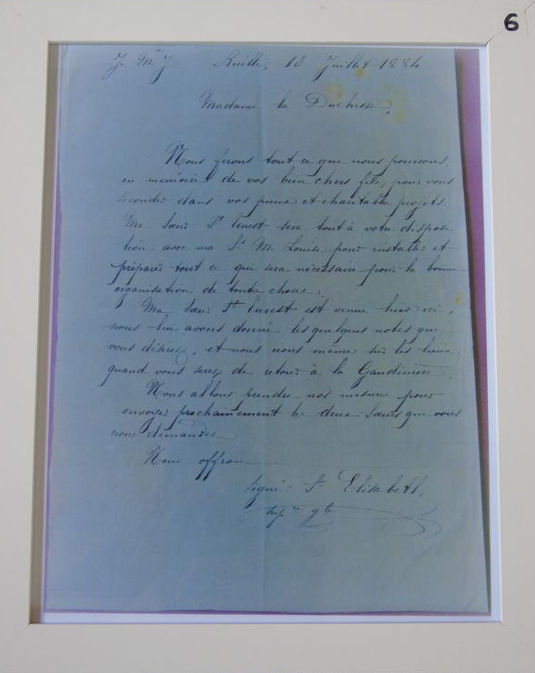 6
J. M. J. Ruillé, 13 Juillet 1884
Madame la Duchesse,
Nous ferons tout ce que nous pourrons
en mémoire de vos bien chers fils, pour vous
seconder dans vos pieux et charitables projets.
Ma Sœur St Ernest sera tout à votre disposi
tion avec ma Sr M. Louise pour installer et
préparer tout ce qui sera nécessaire pour la bonne
organisation de toute chose.
Ma Sœur St Ernest est venue hier ici;
nous lui avons donné les quelques notes que
vous désirez, et nous irons même sur les lieux
quand vous serez de retour à la Gaudinière.
Nous allons prendre nos mesures pour
envoyer prochainement les deux Sœurs que vous
nous demandez
Nous offrons
signé: Sr Elisabeth,
supre gle